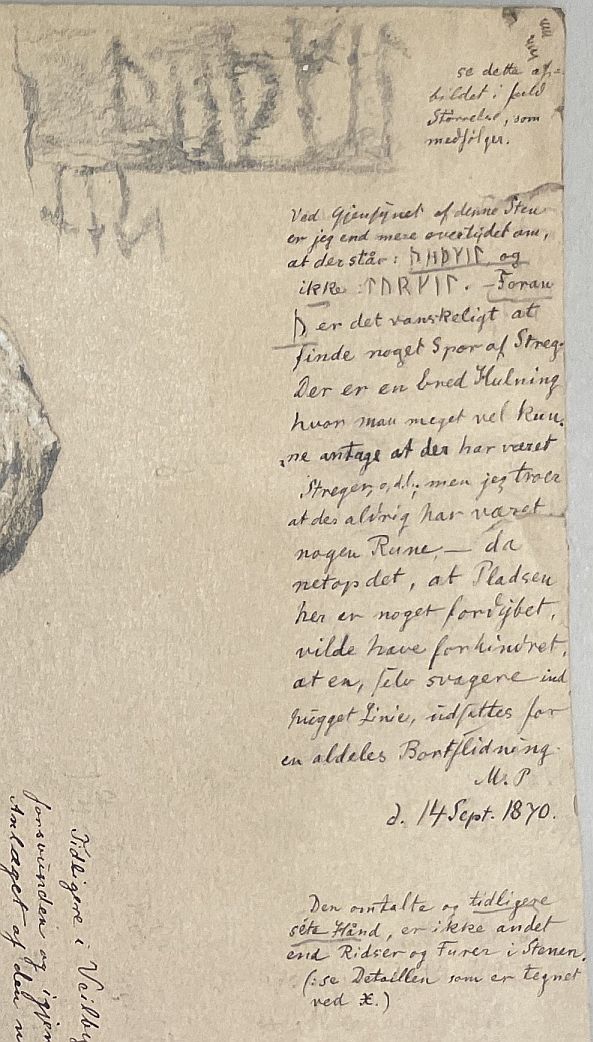 se dette af-
bildet i fuld
Størrelse, som
medfølger.
Ved Gjensynet af denne Sten
er jeg end mere overtydet om,
at der står: ᚢᚺᚦᚠᛁᛚ, og
ikke :ᛏᚢᚱᚠᛁᛚ. – Foran
ᚢ er det vanskeligt at
finde noget Spor af Streg.
Der er en bred Hulning
hvor man meget vel kun-
ne antage at der har været
Streger, o.d.l.; men jeg troer
at der aldrig har været
nogen Rune, — da
netop det, at Pladsen
her er noget fordybet,
vilde have forhindret,
at en, selv svagere ind
hugget Linie, udsattes for
en aldeles Bortslidning.
M. P
d. 14 Sept. 1870.
Den omtalte og tidligere
séte Hånd, er ikke andet
end Ridser og Furer i Stenen.
(: se Detaillen som er tegnet
ved X.)
Tidligere i Veilby
forsvunden og igjen
Anlæget af den n